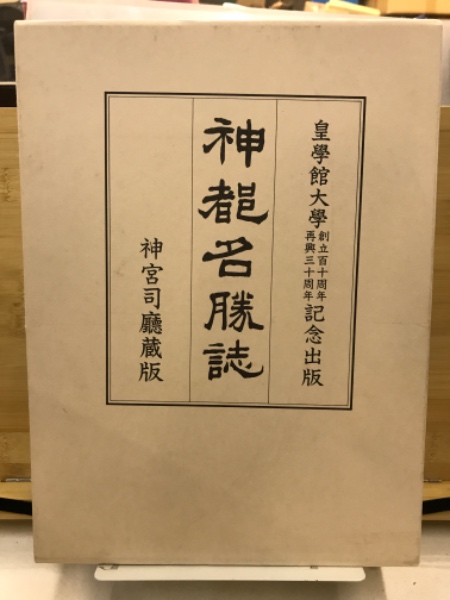 皇學館大學創立百十周年再興三十周年記念出版
神都名勝誌
神宮司廳蔵版